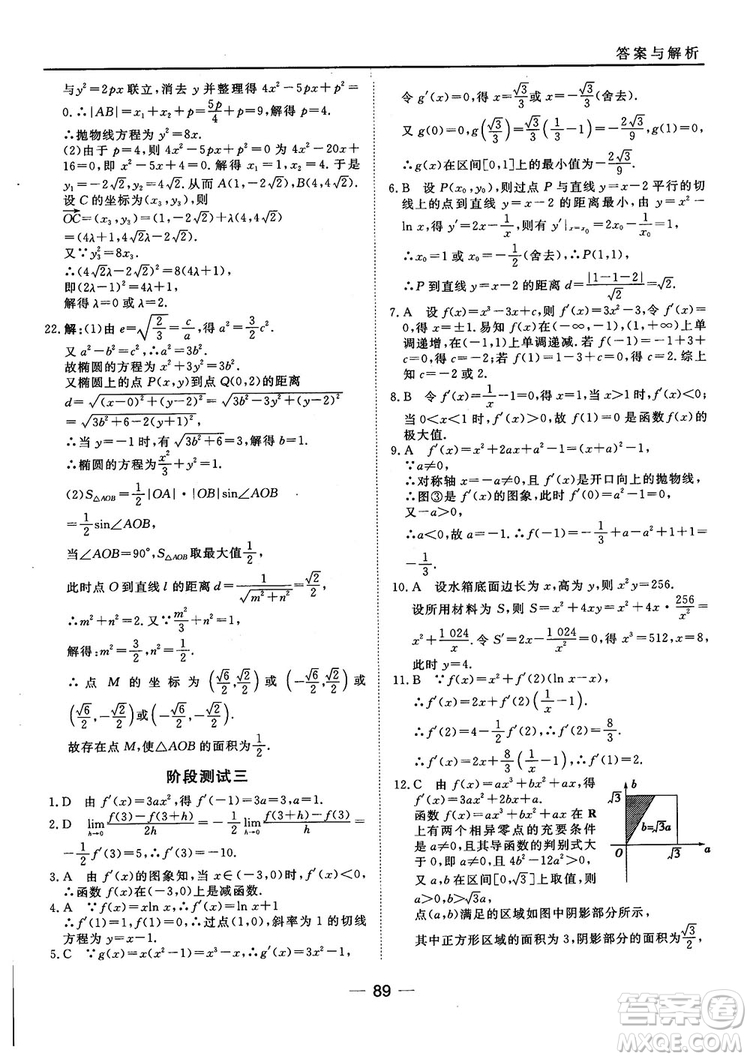 答案与解析
与y²=2px联立,消去y并整理得4x²-5px+p²=
0.∴|AB|=x₁+x₂+p=5p/4+p=9,解得p=4.
∴抛物线方程为y²=8x.
(2)由于p=4,则4x²-5px+p²=0即4x²-20x+
16=0,即x²-5x+4=0,解得x₁=1,x₂=4,于是
y₁=-2√2,y₂=4√2.从而A(1,-2√2),B(4,4√2).
设C的坐标为(x₃,y₃),则
OC=(x₃,y₃)=(1,-2√2)+λ(3,6√2)
=(3λ+1,6√2λ-2√2).
又∵y₃²=8x₃,
即(2λ-1)²=4λ+1.
22.解:(1)由e=√(2/3)=c/a,得a²=3/2c².
又a²-b²=c²,∴a²=3b².
故椭圆的方程为x²+3y²=3b².
则椭圆上的点P(x,y)到点Q(0,2)的距离
d=√((x-0)²+(y-2)²)=√(3b²-3y²+(y-2)²)
=√(3b²+6-2(y+1)²),
∴当y=-1时,有√(3b²+6)=3.解得b=1.
∴椭圆的方程为x²/3+y²=1.
(2)S△AOB=1/2|OA|·|OB|sin∠AOB
=1/2sin∠AOB.
当∠AOB=90°,S△AOB取最大值1/2,
此时点O到直线l的距离d=1/√(m²+n²)=√2/2,
∴m²+n²=2.又∵m²/3+n²=1,
解得:m²=3/2,n²=1/2,
∴点M的坐标为(√6/2,√2/2)或(-√6/2,√2/2)或
(√6/2,-√2/2)或(-√6/2,-√2/2).
故存在点M,使△AOB的面积为1/2.
阶段测试三
1.D 由f′(x)=3ax²,得f′(-1)=3a=3,∴a=1.
2.D lim(h→0) [f(3)-f(3+h)]/2h=-1/2 lim(h→0) [f(3+h)-f(3)]/h=
-1/2f′(3)=-5/2.
3.A 由f′(x)的图象知,当x∈(-3,0)时,f′(x)<0,
∴函数f(x)在(-3,0)上是减函数.
4.A ∵f(x)=xln x,∴f′(x)=ln x+1,
∴f′(1)=1.又f(1)=0,∴过点(1,0),斜率为1的切线
方程为y=x-1.
5.C ∵g(x)=x(x²-1)=x³-x,∴g′(x)=3x²-1,
令g′(x)=0,得x=√3/3或x=-√3/3(舍去).
又g(0)=0,g(√3/3)=√3/3(1/3-1)=-2√3/9,g(1)=0,
∴g(x)在区间[0,1]上的最小值为-2√3/9.
6.B 设P(x₀,y₀),则过点P与直线y=x-2平行的切
线上的点到直线y=x-2的距离最小,由y=x²-
ln x,得y′=2x-1/x,则y′|x=x₀=2x₀-1/x₀=1,
∴x₀=1或x₀=-1/2(舍去),∴P(1,1)
∴P到直线y=x-2的距离d=|1-1-2|/√2=√2.
7.A 设f(x)=x³-3x+c,则f′(x)=3x²-3,令f′(x)=
0,得x=±1.易知f(x)在(-∞,-1),(1,+∞)上单
调递增,在(-1,1)上单调递减.若f(1)=1-3+
c=0,可得c=2;若f(-1)=-1+3+c=0,可得c=-2.综上
知c=-2或2.
8.B 令f′(x)=1/x-1=0,得x=1.当x>1时,f′(x)<0;
当0<x<1时,f′(x)>0,故f(1)是函数f(x)的
极大值.
9.A ∵f′(x)=x²+2ax+a²-1=(x+a)²-1,
∵a≠0,
∴对称轴x=-a≠0,且f′(x)是开口向上的抛物线,
∴图③是f′(x)的图象,由此可知a²-1=0,
∴a<0,故a=-1.∴f(-1)=-1/3+a-a²+1+1=
-1/3.
10.A 设水箱底面边长为x,高为y,则x²y=256.
设所用材料为S,则S=x²+4xy=x²+4x·256/x²
=x²+1 024/x.令S′=2x-1 024/x²=0,得x³=512,x=8,
此时y=4.
11.B ∵f(x)=x²+f′(2)(ln x-x),
∴f′(x)=2x+f′(2)(1/x-1),
∴f′(2)=4+f′(2)(1/2-1),
∴f′(2)=8/3,
12.C f′(x)=3ax²+2bx+a.
函数f(x)=ax³+bx²+ax在R
上有两个相异零点的充要条件
是a≠0,且其导函数的判别式大
于0,即a≠0,且4b²-12a²>0,
又x在区间(0,√3]上取值,
a>0,b>√3a,
点(a,b)满足的区域如图中阴影部分所示,
其中正方形区域的面积为3,阴影部分的面积为√3/2,
b
√3
b=√3a
O
√3
a
89
答案圈
MXQE.COM